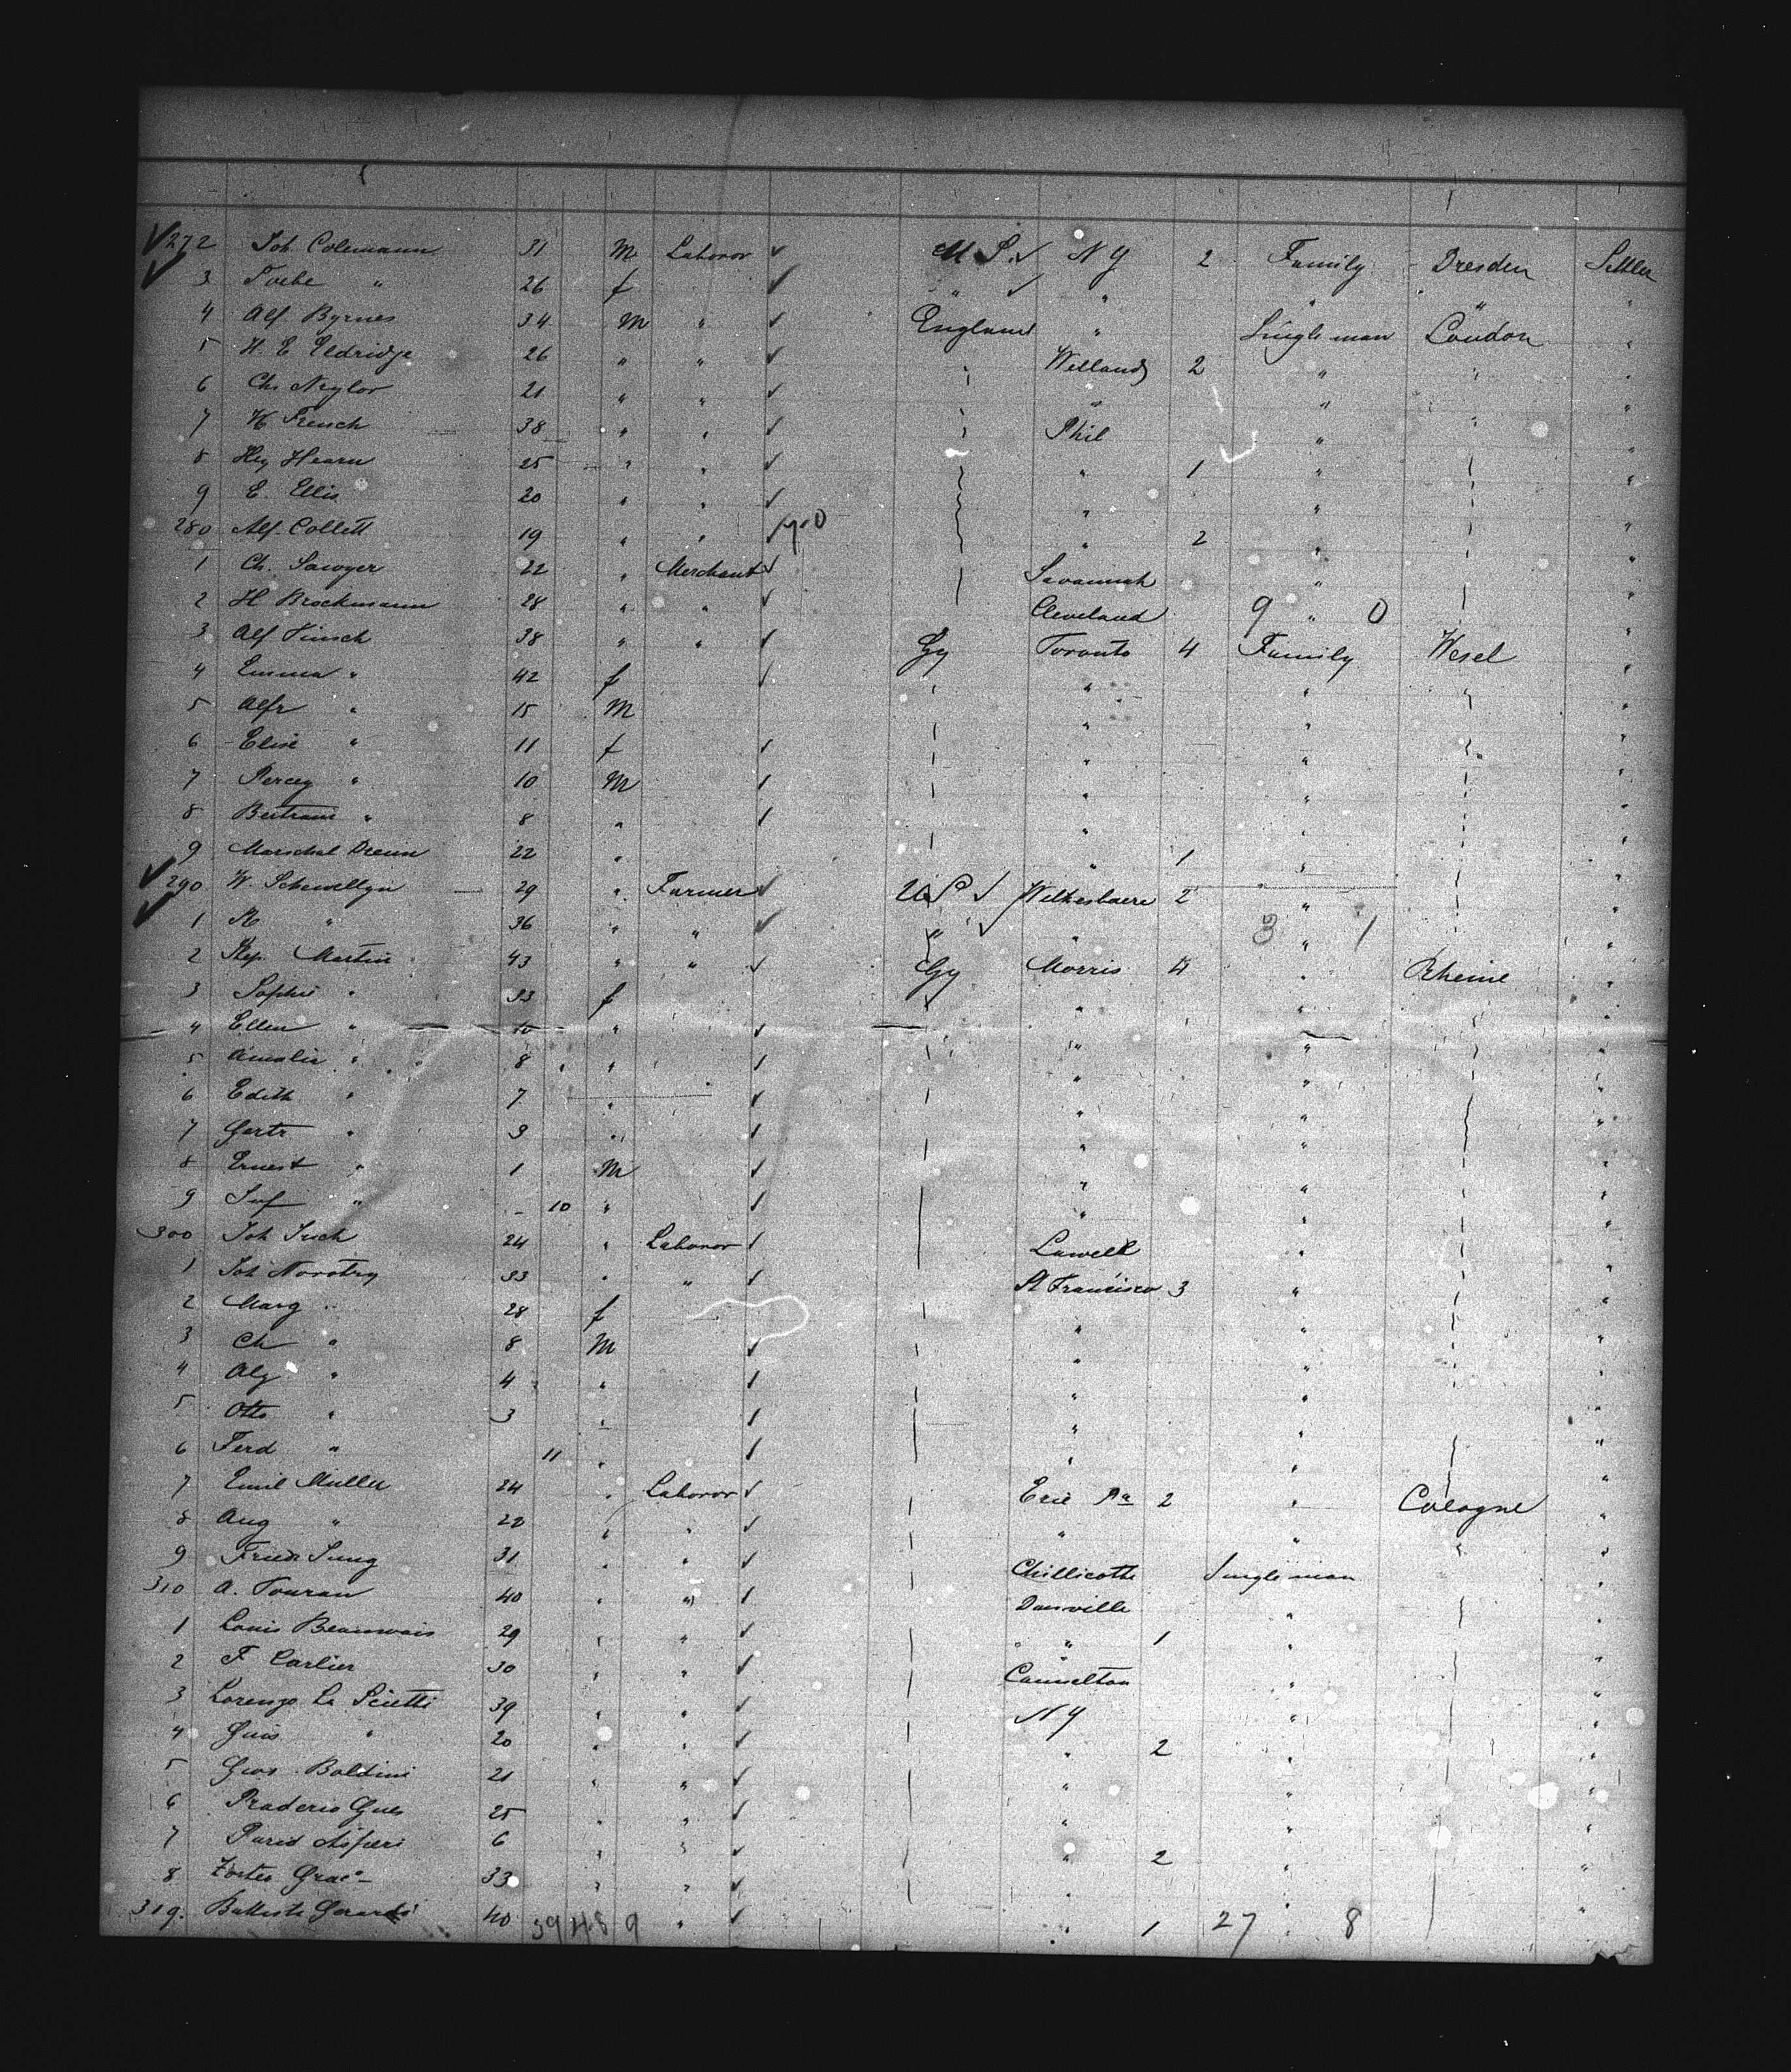 272 Joh Colemann 31 M Laboror U.S. N Y 2 Family Dresden Settler
3 " 26 f " " " " "
4 Alf Byrnes 34 M " England " Single man London "
5 H. E Eldridge 26 " " Welland 2 " "
6 Ch. Neylor 21 " " " " "
7 H French 38 " " Phil " "
8 Hy Hearn 25 " " " 1 " "
9 E. Ellis 20 " " " " "
280 Alf. Collett 19 " " " 2 " "
1 Ch. Sawyer 22 " Merchant Savannah " "
2 H Brockmann 28 " " Cleveland 9 " 0 "
3 Alf Hinsch 38 " " Gy Toronto 4 Family Wesel "
4 Emma " 42 f " " " "
5 Alfr " 15 M " " "
6 Elise " 11 f " " "
7 Percy " 10 M " " "
8 Bertram " 8 " " " "
9 Marschal 22 " " 1 " "
290 W. Schewellyn 29 " Farmer U S Wilkesbaere 2 " "
1 " 36 " " " " 3 " 1 "
2 Step. Martin 43 " " Gy Morris 4 " Rheine "
3 Sophie " 33 f " " "
4 Ellen " 10 " " " "
5 Amalie " 8 " " " "
6 Edith " 7 " " " "
7 Gertr " 3 " " " "
8 Ernest " 1 M " " "
9 Inf " - 10 " " " "
300 Joh 24 " Laboror Lowell " "
1 Joh Novotny 33 " " St Francisco 3 " "
2 Marg " 28 f " " "
3 Ch " 8 M " " "
4 Aly " 4 " " " "
5 Otto " 3 " " " "
6 Ferd " 11 " " " "
7 Emil Muller 24 " Laboror Erie Pa 2 " Cologne "
8 Aug " 22 " " " " " "
9 Friedr Jung 31 " " Chillicothe Single man "
310 A. Touran 40 " " Danville " "
1 Louis Beauvais 29 " " " 1 " "
2 F Carlier 30 " " Cannelton " "
3 Lorenzo La Scietti 39 " " N Y " "
4 " 20 " " " 2 " "
5 Baldini 21 " " " " "
6 Praderio 25 " " " " "
7 6 " " " 2 " "
8 33 " " " " "
319. Battista Gerardi 40 39 48 9 " " 1 27 " 8